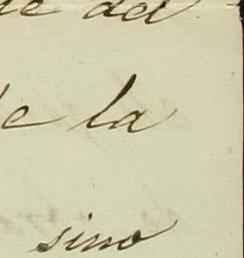 de del
de la
sino